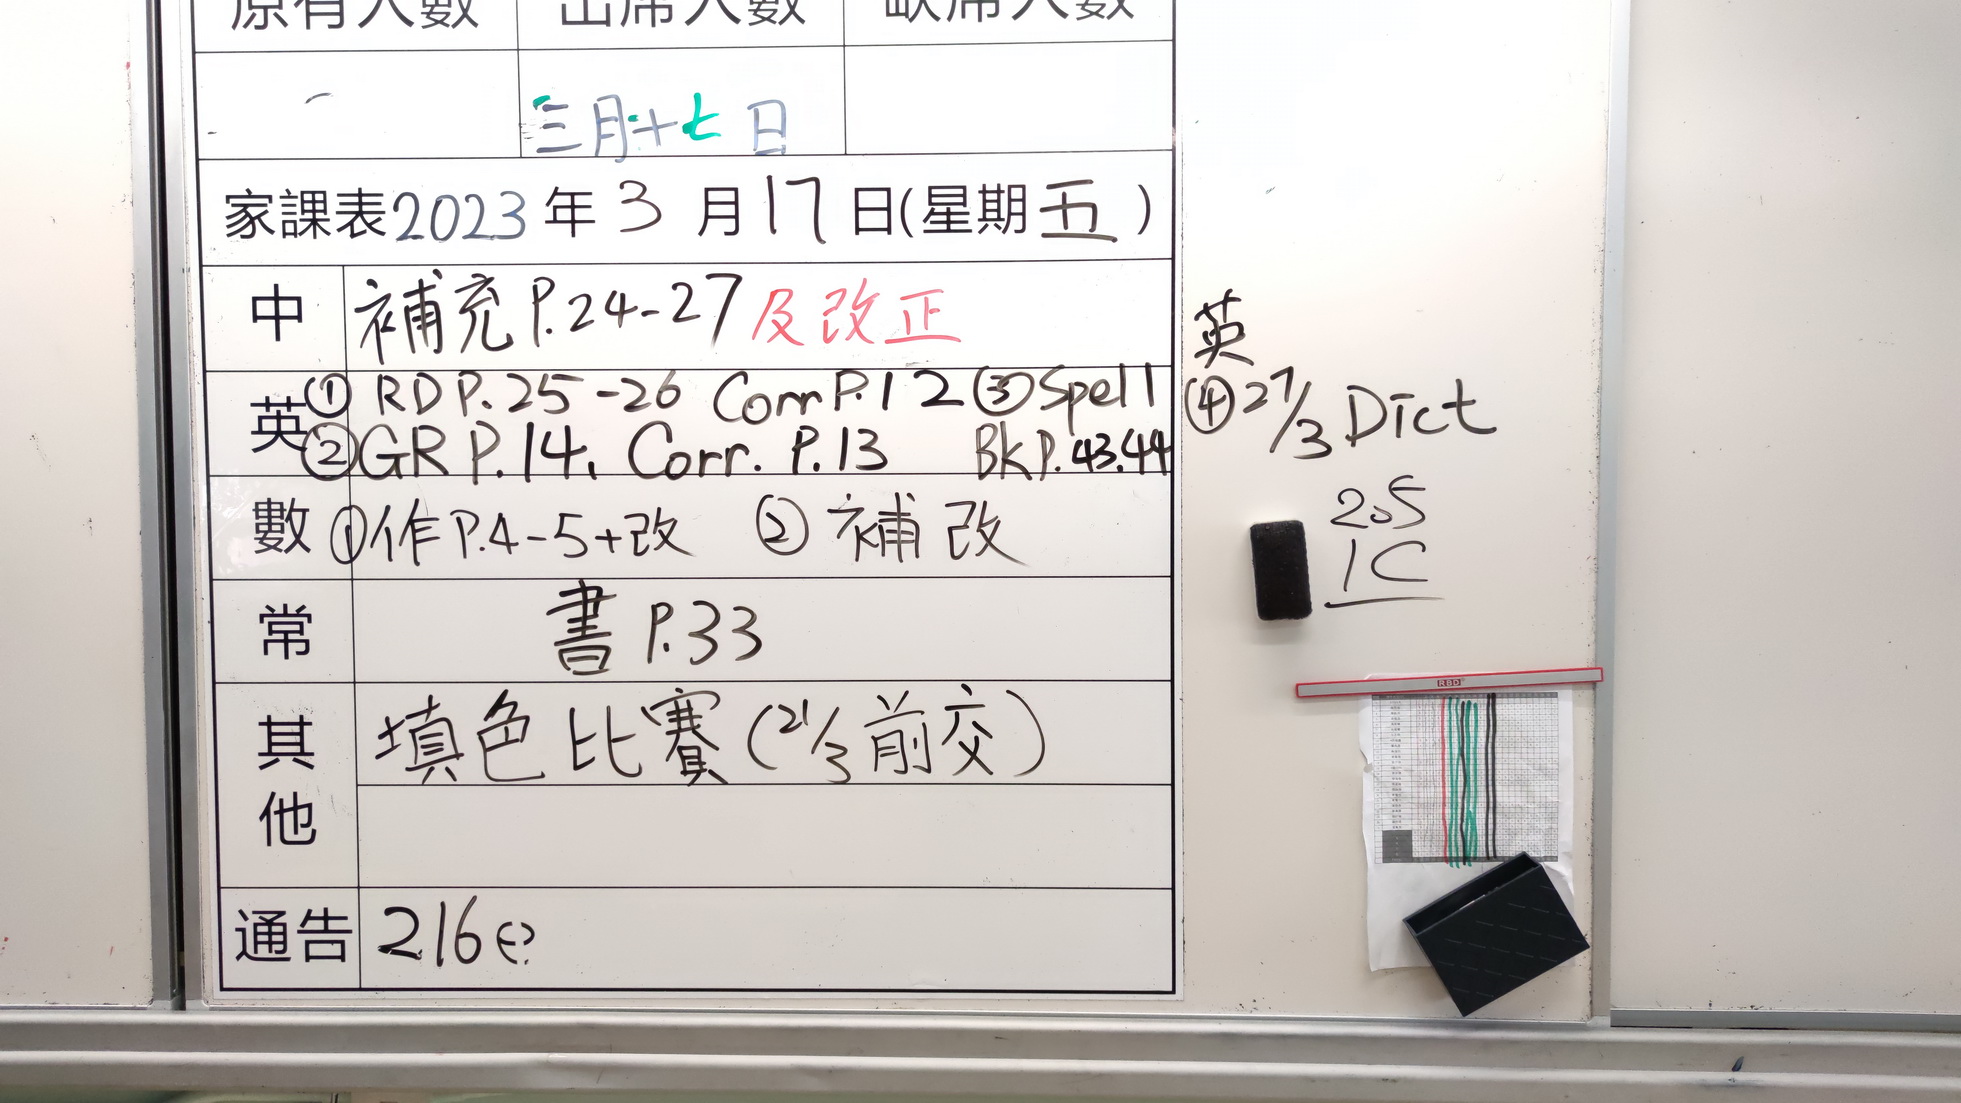 原有人數 出席人數 缺席人數
三月十七日
家課表2023年3月17日(星期五)
中 補充P.24-27及改正
英 ① RD P.25-26 Corr P.12 ③ Spell
② GR P.14. Corr. P.13 Bk P.43.44
英
④ 27/3 Dict
2.5
1C
數 ① 作P.4-5+改 ② 補改
常 書P.33
其他 填色比賽(21/3前交)
通告 216
RBD